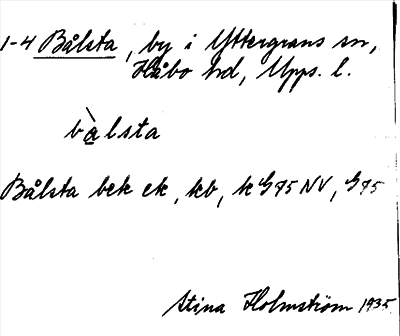 1-4 Bålsta, by i Yttergrans sn,
Håbo hd, Upps. l.
bàlsta
Bålsta bek ek, kb, k G75 NV, G75
Stina Holmström 1935